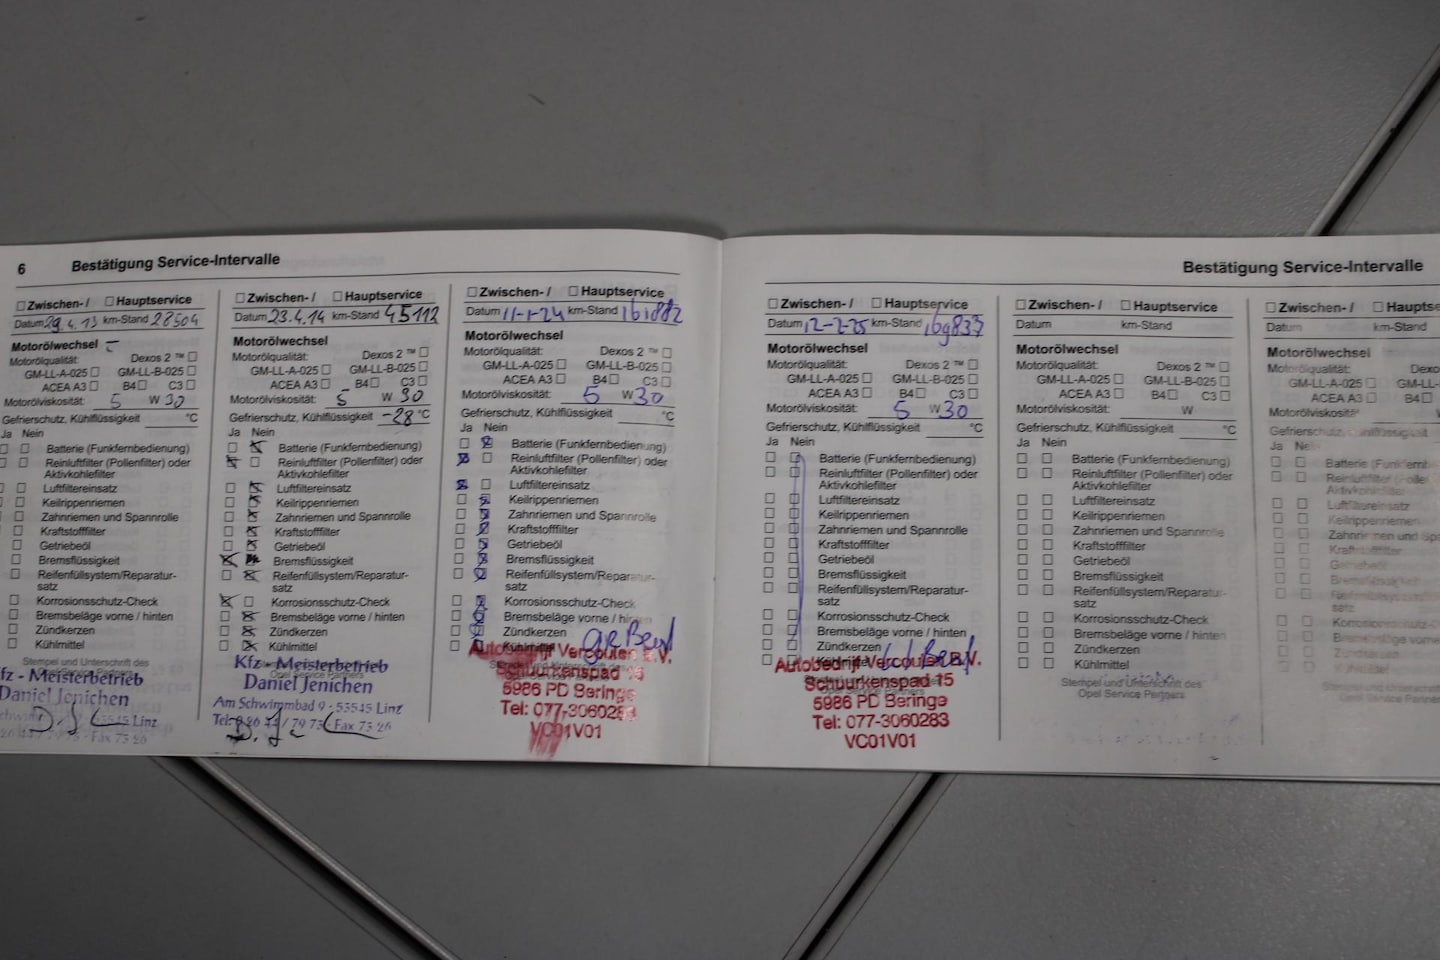 6 Bestätigung Service-Intervalle
Zwischen- / Hauptservice
Datum 29.4.13 km-Stand 28504
Motorölwechsel
Motorölqualität: Dexos 2 ™
GM-LL-A-025 GM-LL-B-025
ACEA A3 B4 C3
Motorölviskosität: 5 W 30
Gefrierschutz, Kühlflüssigkeit °C
Ja Nein
Batterie (Funkfernbedienung)
Reinluftfilter (Pollenfilter) oder
Aktivkohlefilter
Luftfiltereinsatz
Keilrippenriemen
Zahnriemen und Spannrolle
Kraftstofffilter
Getriebeöl
Bremsflüssigkeit
Reifenfüllsystem/Reparatur-
satz
Korrosionsschutz-Check
Bremsbeläge vorne / hinten
Zündkerzen
Kühlmittel
Stempel und Unterschrift des
fz - Meisterbetrieb
Daniel Jenichen
55545 Linz
Fax 73 26
Zwischen- / Hauptservice
Datum 23.4.14 km-Stand 45112
Motorölwechsel
Motorölqualität: Dexos 2 ™
GM-LL-A-025 GM-LL-B-025
ACEA A3 B4 C3
Motorölviskosität: 5 W 30
Gefrierschutz, Kühlflüssigkeit -28 °C
Ja Nein
Batterie (Funkfernbedienung)
Reinluftfilter (Pollenfilter) oder
Aktivkohlefilter
Luftfiltereinsatz
Keilrippenriemen
Zahnriemen und Spannrolle
Kraftstofffilter
Getriebeöl
Bremsflüssigkeit
Reifenfüllsystem/Reparatur-
satz
Korrosionsschutz-Check
Bremsbeläge vorne / hinten
Zündkerzen
Kühlmittel
Kfz - Meisterbetrieb
Daniel Jenichen
Am Schwimmbad 9 - 53545 Linz
Fax 73 26
Zwischen- / Hauptservice
Datum 11-1-24 km-Stand 161882
Motorölwechsel
Motorölqualität: Dexos 2 ™
GM-LL-A-025 GM-LL-B-025
ACEA A3 B4 C3
Motorölviskosität: 5 W 30
Gefrierschutz, Kühlflüssigkeit °C
Ja Nein
Batterie (Funkfernbedienung)
Reinluftfilter (Pollenfilter) oder
Aktivkohlefilter
Luftfiltereinsatz
Keilrippenriemen
Zahnriemen und Spannrolle
Kraftstofffilter
Getriebeöl
Bremsflüssigkeit
Reifenfüllsystem/Reparatur-
satz
Korrosionsschutz-Check
Bremsbeläge vorne / hinten
Zündkerzen
Kühlmittel
Autobedrijf Vercoulen B.V.
Schuurkenspad 15
5986 PD Beringe
Tel: 077-3060283
VC01V01
Bestätigung Service-Intervalle
Zwischen- / Hauptservice
Datum 12-2-25 km-Stand 169837
Motorölwechsel
Motorölqualität: Dexos 2 ™
GM-LL-A-025 GM-LL-B-025
ACEA A3 B4 C3
Motorölviskosität: 5 W 30
Gefrierschutz, Kühlflüssigkeit °C
Ja Nein
Batterie (Funkfernbedienung)
Reinluftfilter (Pollenfilter) oder
Aktivkohlefilter
Luftfiltereinsatz
Keilrippenriemen
Zahnriemen und Spannrolle
Kraftstofffilter
Getriebeöl
Bremsflüssigkeit
Reifenfüllsystem/Reparatur-
satz
Korrosionsschutz-Check
Bremsbeläge vorne / hinten
Zündkerzen
Autobedrijf Vercoulen B.V.
Schuurkenspad 15
5986 PD Beringe
Tel: 077-3060283
VC01V01
Zwischen- / Hauptservice
Datum km-Stand
Motorölwechsel
Motorölqualität: Dexos 2 ™
GM-LL-A-025 GM-LL-B-025
ACEA A3 B4 C3
Motorölviskosität: W
Gefrierschutz, Kühlflüssigkeit °C
Ja Nein
Batterie (Funkfernbedienung)
Reinluftfilter (Pollenfilter) oder
Aktivkohlefilter
Luftfiltereinsatz
Keilrippenriemen
Zahnriemen und Spannrolle
Kraftstofffilter
Getriebeöl
Bremsflüssigkeit
Reifenfüllsystem/Reparatur-
satz
Korrosionsschutz-Check
Bremsbeläge vorne / hinten
Zündkerzen
Kühlmittel
Stempel und Unterschrift des
Opel Service Partners
Zwischen- / Haupts
Datum km-Stand
Motorölwechsel
Motorölqualität: Dexo
GM-LL-A-025 GM-LL-
ACEA A3 B4
Motorölviskosität W
Gefrierschutz, Kühlflüssigkeit
Ja Nein
Batterie (Funkfernb
Reinluftfilter (Polle
Aktivkohlefilter
Luftfiltereinsatz
Keilrippenriemen
Zahnriemen und Sp
Kraftstofffilter
Getriebeöl
Bremsflüssigkeit
satz
Korrosionsschutz
Bremsbeläge vorne
Zündkerzen
Kühlmittel